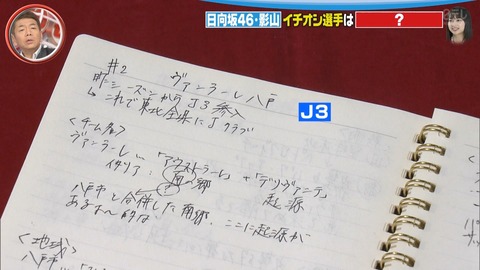 日向坂46・影山 イチオシ選手は ？
#2 ヴァンラーレ八戸
昨シーズンからJ3参入
↳ これで東北全県にJクラブ
J3
<チーム名>
ヴァンラーレ…「アウストラーレ」+「デリヴァンテ」
イタリア: 南の郷 起源
八戸市と合併した南郷、ここに起源が
あるよ〜的な
<地域>
八戸市